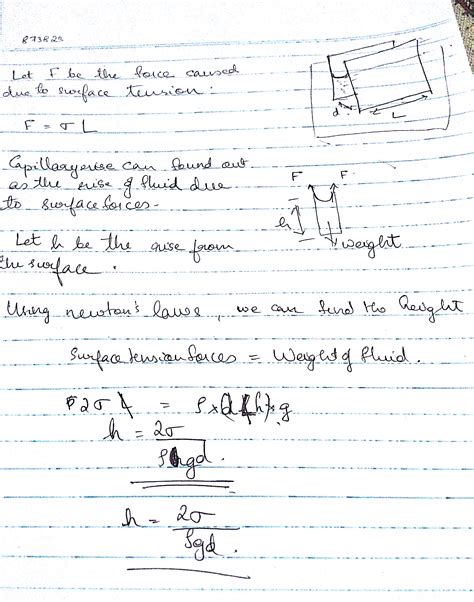 Let F be the force caused
due to surface tension:
F = σ L
d
L
Capillary rise can found out
as the rise of fluid due
to surface forces-
F F
h
weight
Let h be the rise from
the surface.
Using newton's laws, we can find the height
Surface tension forces = Weight of fluid.
2σ L = ρ x (d L h) x g
h = 2σ
ρgd.
h = 2σ
ρgd.